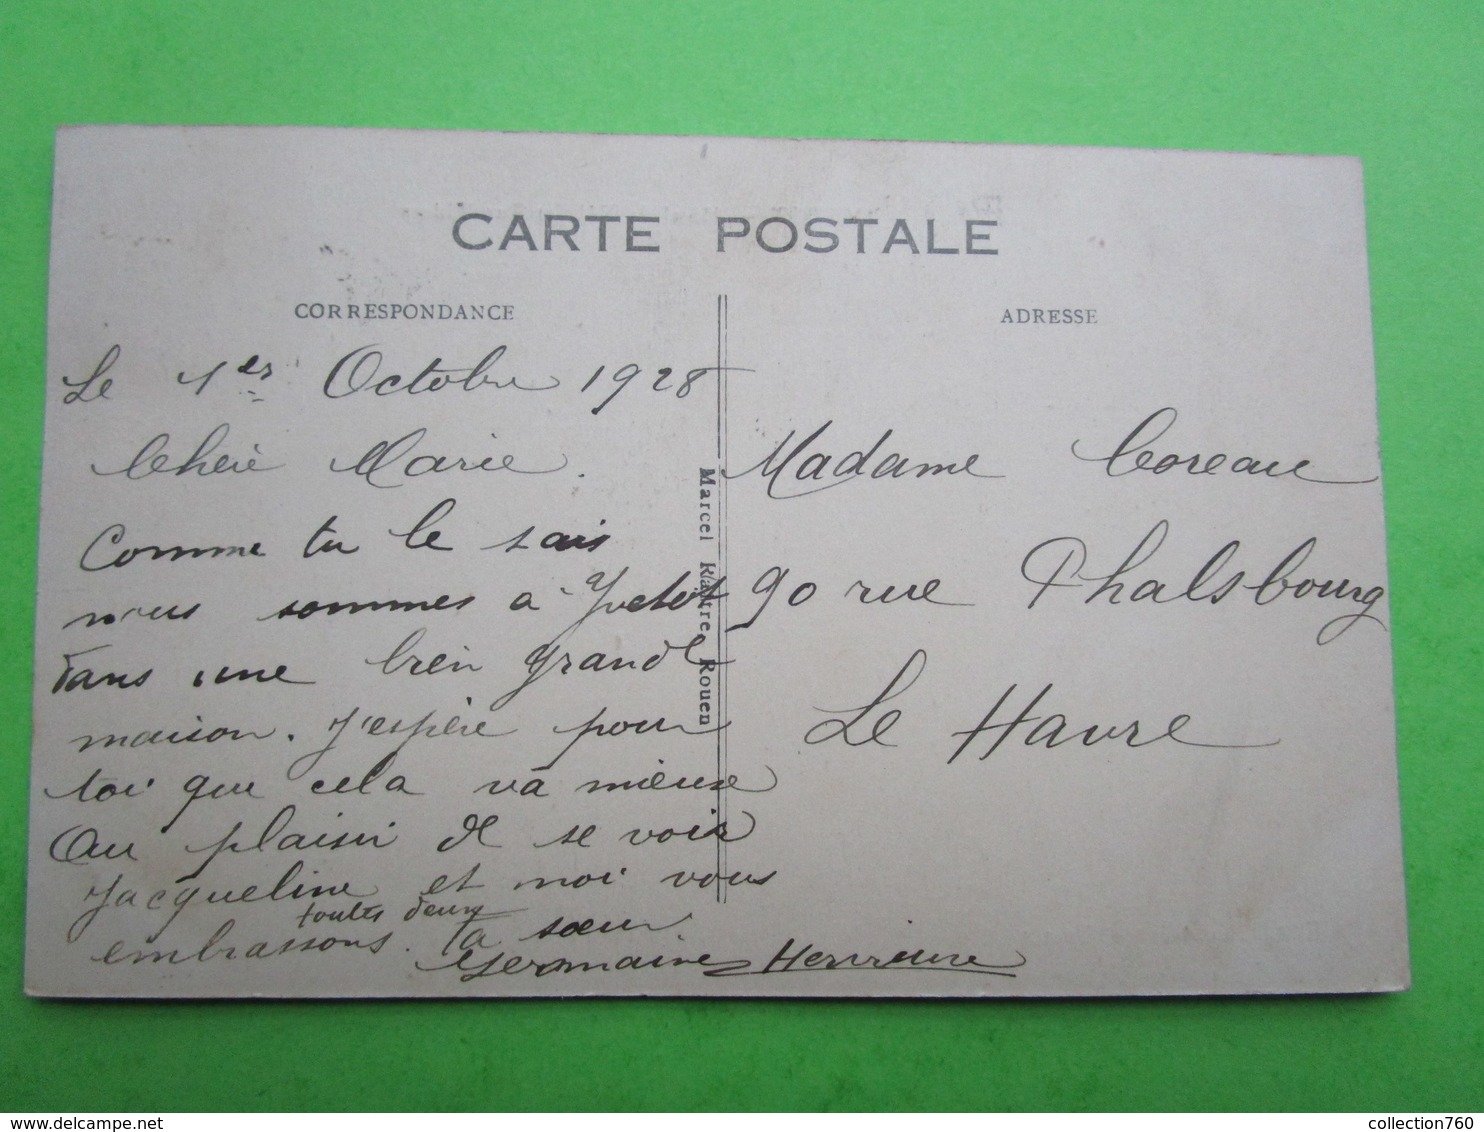 CARTE POSTALE
CORRESPONDANCE
ADRESSE
Le 1er Octobre 1928
Chère Marie.
Comme tu le sais
nous sommes a Yvetot
dans une bien grande
maison. J'espère pour
toi que cela va mieux
Au plaisir de se voir
Jacqueline et moi vous
embrassons toutes deux. Ta sœur.
Germaine
Marcel Rouen
Madame Coreau
90 rue Phalsbourg
Le Havre
collection760